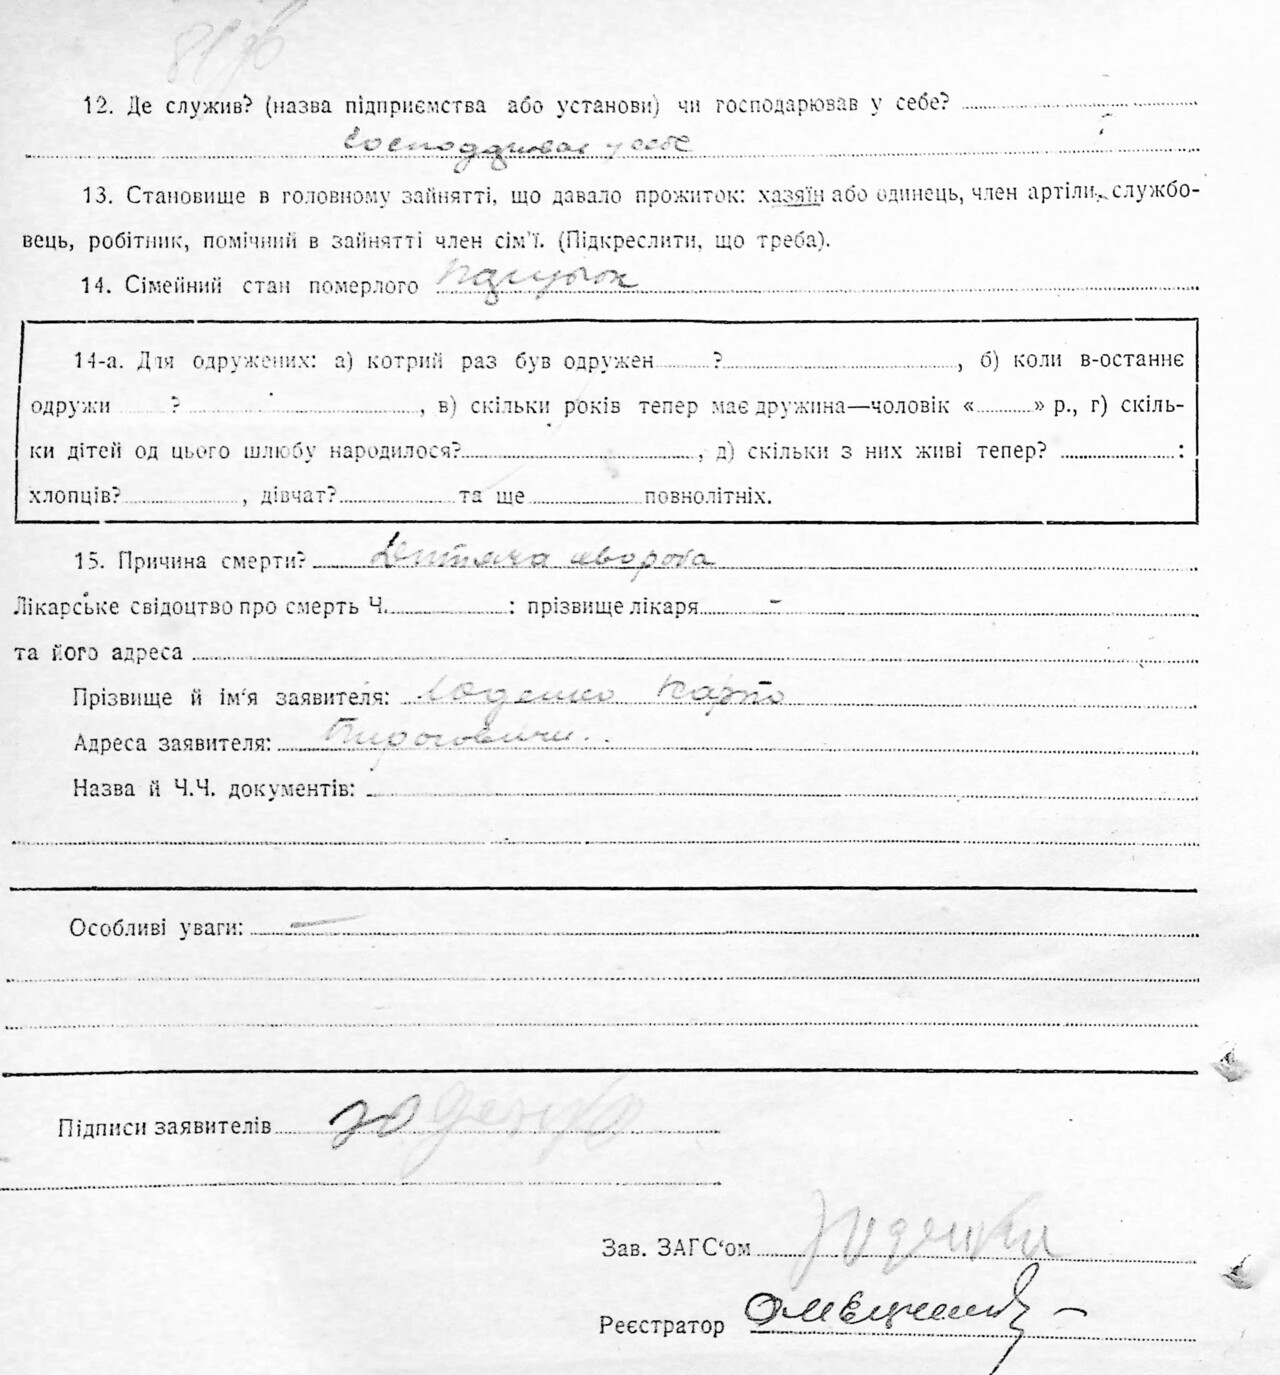 12. Де служив? (назва підприємства або установи) чи господарював у себе?
господарював у себе
13. Становище в головному зайнятті, що давало прожиток: хазяїн або одинець, член артіли, службо-
вець, робітник, помічний в зайнятті член сім'ї. (Підкреслити, що треба).
14. Сімейний стан померлого
14-а. Для одружених: а) котрий раз був одружен ? , б) коли в-останнє
одружи ? , в) скільки років тепер має дружина—чоловік « » р., г) скіль-
ки дітей од цього шлюбу народилося? , д) скільки з них живі тепер? :
хлопців? , дівчат? та ще повнолітніх.
15. Причина смерти? Дитяча хвороба
Лікарське свідоцтво про смерть Ч. : прізвище лікаря -
та його адреса
Прізвище й ім'я заявителя: Юденко
Адреса заявителя: Пироговичи
Назва й Ч.Ч. документів:
Особливі уваги: —
Підписи заявителів Юденко
Зав. ЗАГС'ом
Реєстратор